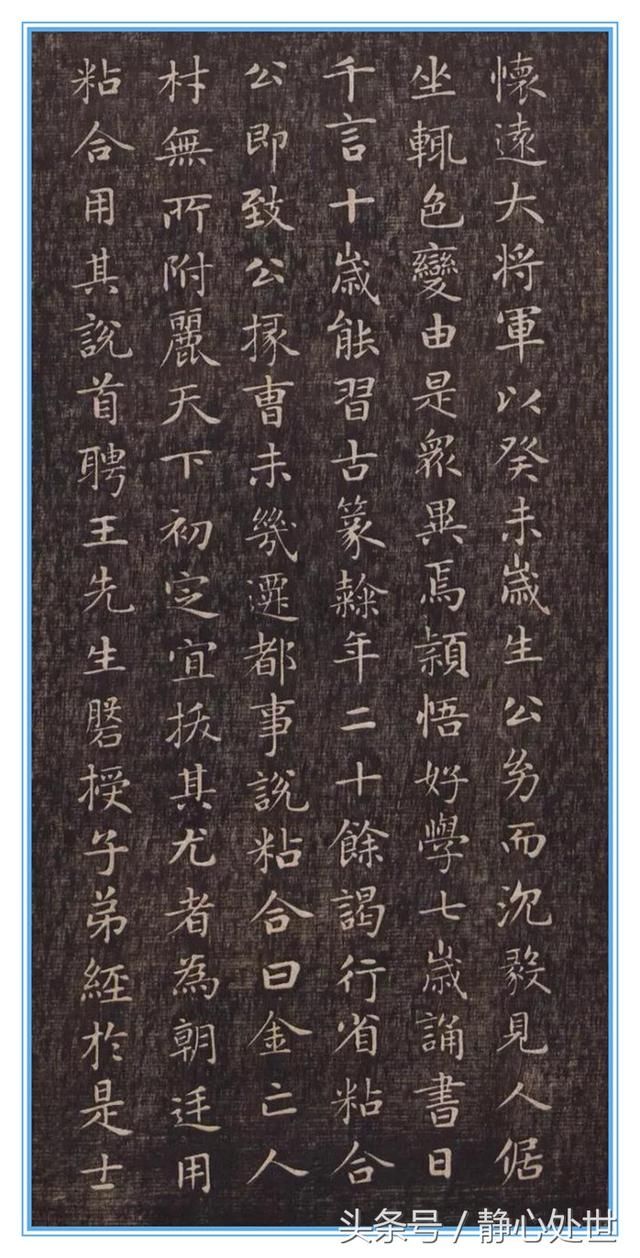 懷遠大将軍以癸未歲生公㓜而沉毅見人倨
坐輒色變由是衆異焉頴悟好學七歲誦書日
千言十歲能習古篆年二十餘謁行省粘合
公即致公掾曹未幾遷都事說粘合曰金亡人
材無所附麗天下初定宜拔其尤者為朝廷用
粘合用其說首聘王先生磐授子弟經於是士
头条号 / 静心处世